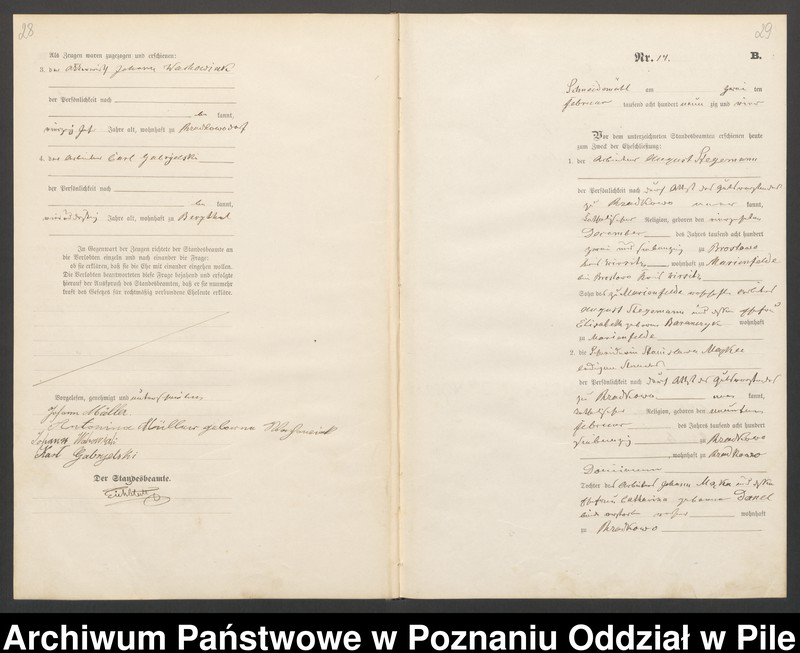 28
Als Zeugen waren zugezogen und erschienen:
3. der Johann Wachowiak
der Persönlichkeit nach
be kannt,
Jahre alt, wohnhaft zu Bradkowo
4. der Arbeiter Carl Gabryelski
der Persönlichkeit nach
be kannt,
Jahre alt, wohnhaft zu Bergthal
In Gegenwart der Zeugen richtete der Standesbeamte an
die Verlobten einzeln und nach einander die Frage:
ob sie erklären, daß sie die Ehe mit einander eingehen wollen.
Die Verlobten beantworteten diese Frage bejahend und erfolgte
hierauf der Ausspruch des Standesbeamten, daß er sie nunmehr
kraft des Gesetzes für rechtmäßig verbundene Eheleute erkläre.
Vorgelesen, genehmigt und unterschrieben
Johann Müller
Antonina Müller geborene
Johann
Karl Gabryelski
Der Standesbeamte.
29
Nr. 14.
B.
Schneidemühl am zwei ten
Februar tausend acht hundert neun zig und vier
Vor dem unterzeichneten Standesbeamten erschienen heute
zum Zweck der Eheschließung:
1. der Arbeiter August Stegemann
der Persönlichkeit nach durch Attest des Gutsvorstandes
zu Bradkowo kannt,
katholischer Religion, geboren den
December des Jahres tausend acht hundert
zwei und siebenzig zu Brostowo
Kreis Wirsitz wohnhaft zu Marienfelde
bei Brostowo Kreis Wirsitz
Sohn des zu Marienfelde
August Stegemann und
Elisabeth geborene wohnhaft
zu Marienfelde
2. die Stanislawa
ledigen Standes
der Persönlichkeit nach durch Attest des Gutsvorstandes
zu Bradkowo kannt,
katholischer Religion, geboren den neunten
Februar des Jahres tausend acht hundert
siebenzig zu Bradkowo
, wohnhaft zu Bradkowo
Dominium
Tochter des Arbeiters Johann und
Ehefrau Catharina geborene
wohnhaft
zu Bradkowo
Archiwum Państwowe w Poznaniu Oddział w Pile